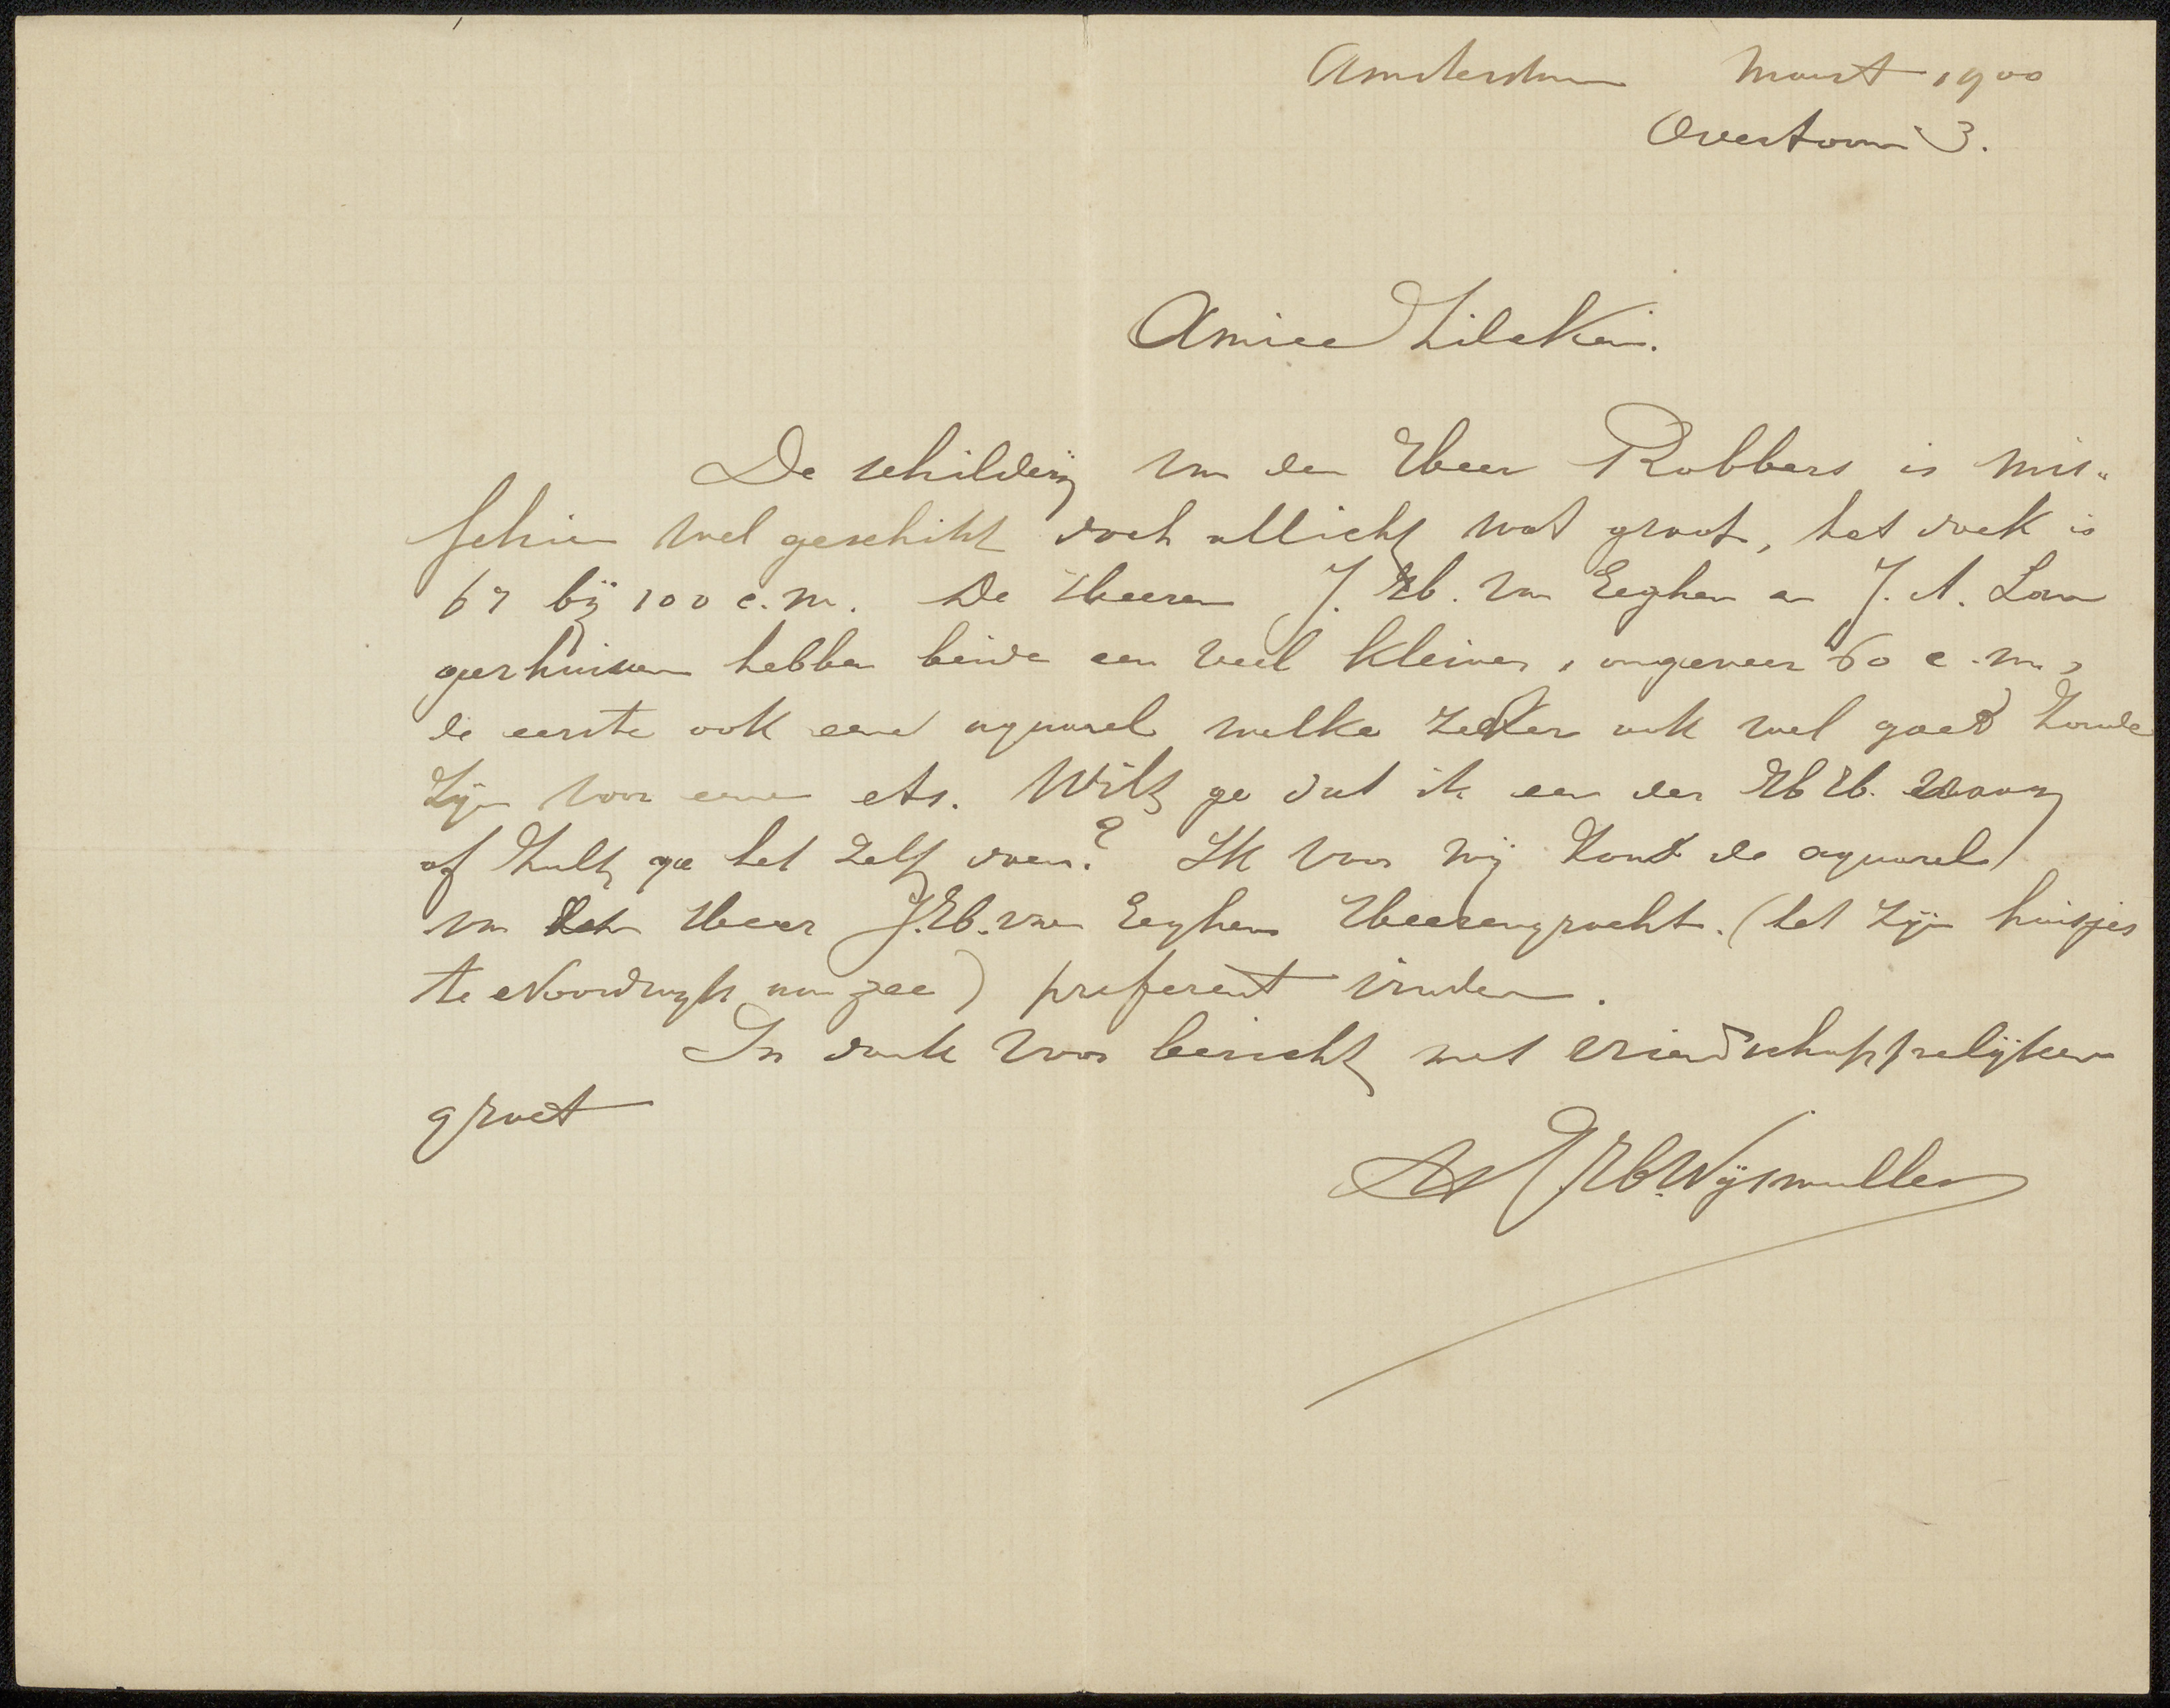 Amsterdam Maart 1900
Overtoom 3.
Amice Zilcken.
De schilderij van den Heer Robbers is mis„
schien wel geschikt doch allicht wat groot, het doek is
67 bij 100 c.m. De Heeren J. H. van Eeghen en J. A. Lan
gerhuisen hebben beide een veel kleiner, ongeveer 60 c.m.,
de eerste ook eene aquarel welke zeker ook wel goed zoude
zijn voor eene ets. Wilt ge dat ik een der H H. vraag
of zult ge het zelf doen? Ik voor mij zoud de aquarel
van den Heer J. H. van Eeghen Heerengracht. (het zijn huisjes
te Noordwijk aan zee) preferent vinden.
In dank voor bericht met vriendschappelijken
groet
J. H. Wijsmuller